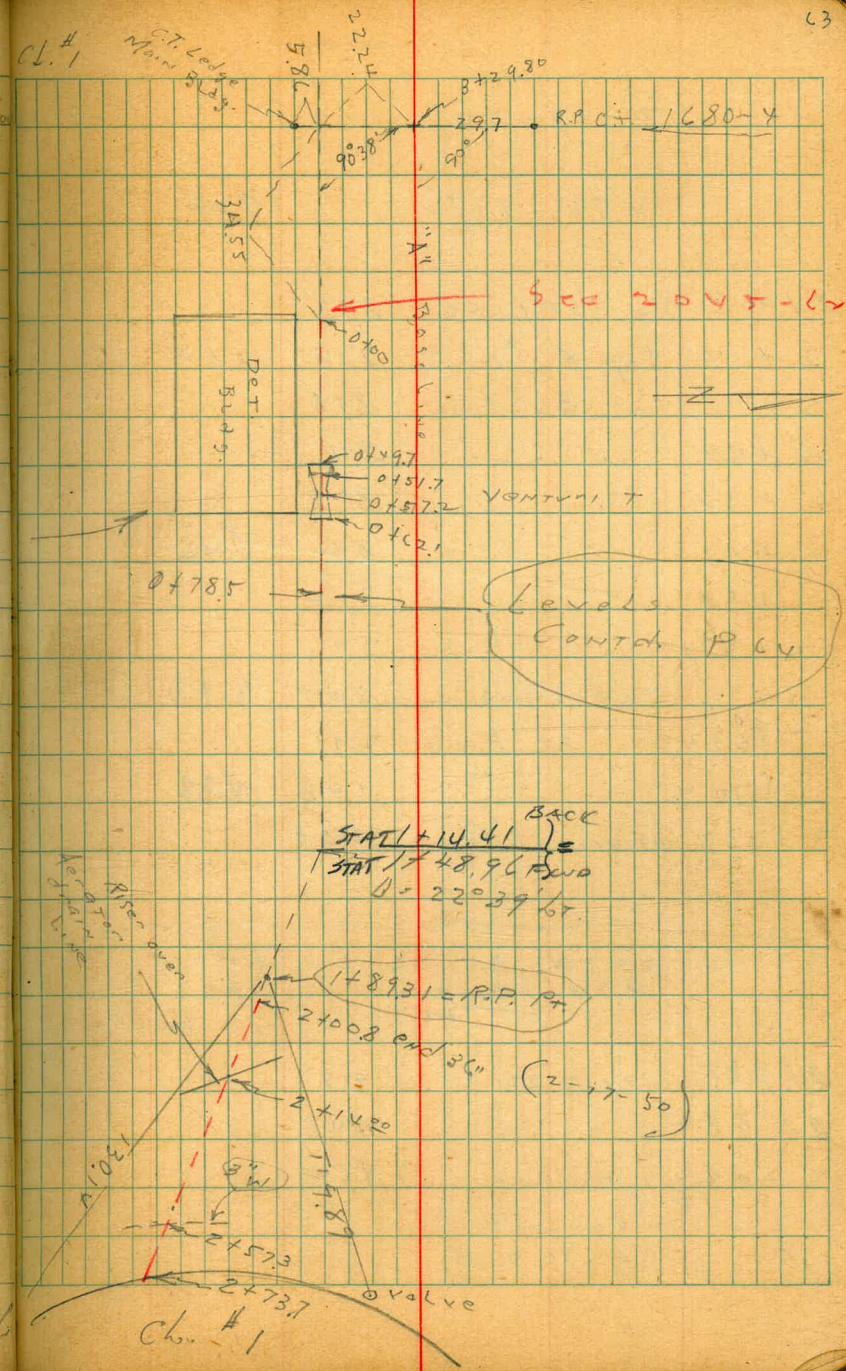 63
Cl. #1
C.T. Ledge
Main Bldg.
5.86
22.24
3+29.80
29.7
R.P. C+ 1680-4
90°38'
90°
34.55
"A" Base Line
0+00
Det.
Bldg.
0+49.7
0+51.7
0+57.2
Venturi T
0+62.1
0+78.5
Levels
Contd. P 64
STAT 1+14.41 BACK
=
STAT 1+48.96 FWD
Δ = 22°39' Lt.
Riser over
Aerator
drain
line
1+89.31 = R.P. Pt.
2+00.8 end 36"
(2-17-50)
2+14.20
114.89
8" W
2+57.3
2+73.7
valve
#1